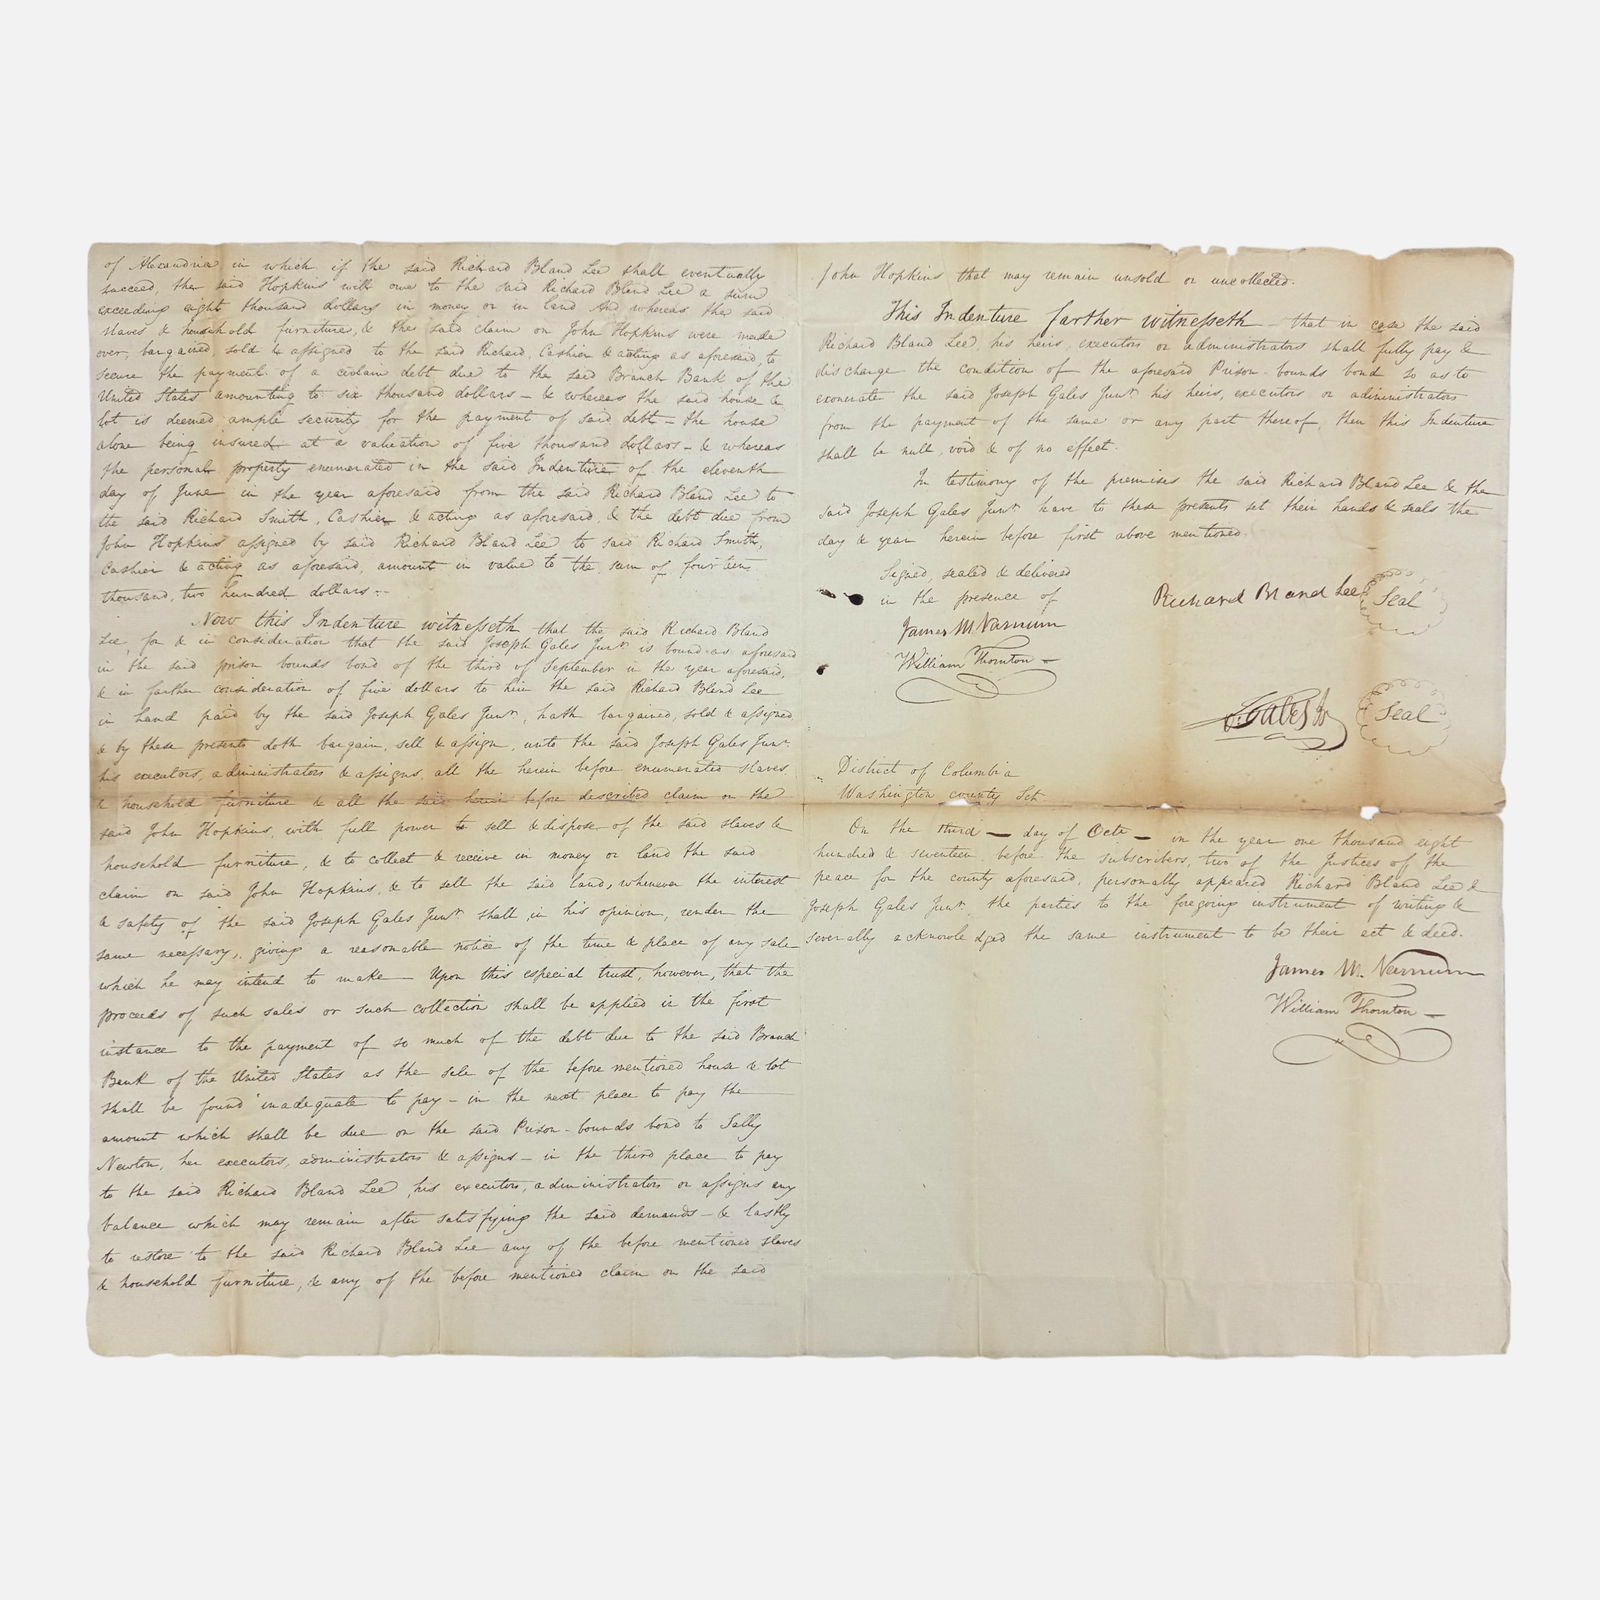 of Alexandria in which if the said Richard Bland Lee shall eventually
succeed, the said Hopkins will owe to the said Richard Bland Lee a sum
exceeding eight thousand dollars in money or in land And whereas the said
slaves & household furniture, & the said claim on John Hopkins were made
over, bargained, sold & assigned to the said Richard, Cashier & acting as aforesaid to
secure the payment of a certain debt due to the said Branch Bank of the
United States amounting to six thousand dollars – & whereas the said house &
lot is deemed ample security for the payment of said debt – the house
alone being insured at a valuation of five thousand dollars – & whereas
the personal property enumerated in the said Indenture of the eleventh
day of June in the year aforesaid from the said Richard Bland Lee to
the said Richard Smith, Cashier & acting as aforesaid, & the debt due from
John Hopkins assigned by said Richard Bland Lee to said Richard Smith,
Cashier & acting as aforesaid, amount in value to the sum of fourteen
thousand, two hundred dollars –
Now this Indenture witnesseth that the said Richard Bland
Lee, for & in consideration that the said Joseph Gales Junr. is bound as aforesaid
in the said prison bounds bond of the third of September in the year aforesaid,
& in farther consideration of five dollars to him the said Richard Bland Lee
in hand paid by the said Joseph Gales Junr., hath bargained, sold & assigned,
& by these presents doth bargain, sell & assign, unto the said Joseph Gales Junr.
his executors, administrators & assigns, all the herein before enumerated slaves
& household furniture & all the said herein before described claim on the
said John Hopkins, with full power to sell & dispose of the said slaves &
household furniture, & to collect & receive in money or land the said
claim on said John Hopkins, & to sell the said land, whenever the interest
& safety of the said Joseph Gales Junr. shall, in his opinion, render the
same necessary, giving a reasonable notice of the time & place of any sale
which he may intend to make – Upon this especial trust, however, that the
proceeds of such sales or such collection shall be applied in the first
instance to the payment of so much of the debt due to the said Branch
Bank of the United States as the sale of the before mentioned house & lot
shall be found inadequate to pay – in the next place to pay the
amount which shall be due on the said Prison-bounds bond to Sally
Newton, her executors, administrators & assigns – in the third place to pay
to the said Richard Bland Lee, his executors, administrators or assigns any
balance which may remain after satisfying the said demands – & lastly
to restore to the said Richard Bland Lee any of the before mentioned slaves
& household furniture, & any of the before mentioned claim on the said
John Hopkins that may remain unsold or uncollected.
This Indenture farther witnesseth – that in case the said
Richard Bland Lee, his heirs, executors or administrators shall fully pay &
discharge the condition of the aforesaid Prison-bounds bond so as to
exonerate the said Joseph Gales Junr. his heirs, executors or administrators
from the payment of the same or any part thereof, then this Indenture
shall be null, void & of no effect.
In testimony of the premises the said Richard Bland Lee & the
said Joseph Gales Junr. have to these presents set their hands & seals the
day & year herein before first above mentioned.
Signed, sealed & delivered
in the presence of
James M. Varnum
William Thornton –
Richard Bland Lee Seal
J. Gales Jr Seal
District of Columbia
Washington county Sct
On the third – day of Octr – in the year one thousand eight
hundred & seventeen before the subscribers, two of the Justices of the
peace for the county aforesaid, personally appeared Richard Bland Lee &
Joseph Gales Junr. the parties to the foregoing instrument of writing &
severally acknowledged the same instrument to be their act & deed.
James M. Varnum
William Thornton –